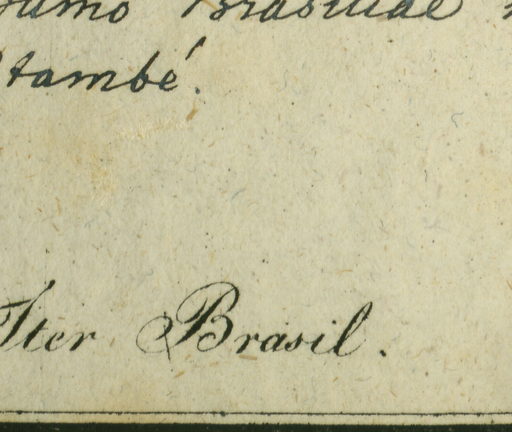 Brasiliae
Itambé.
Iter Brasil.